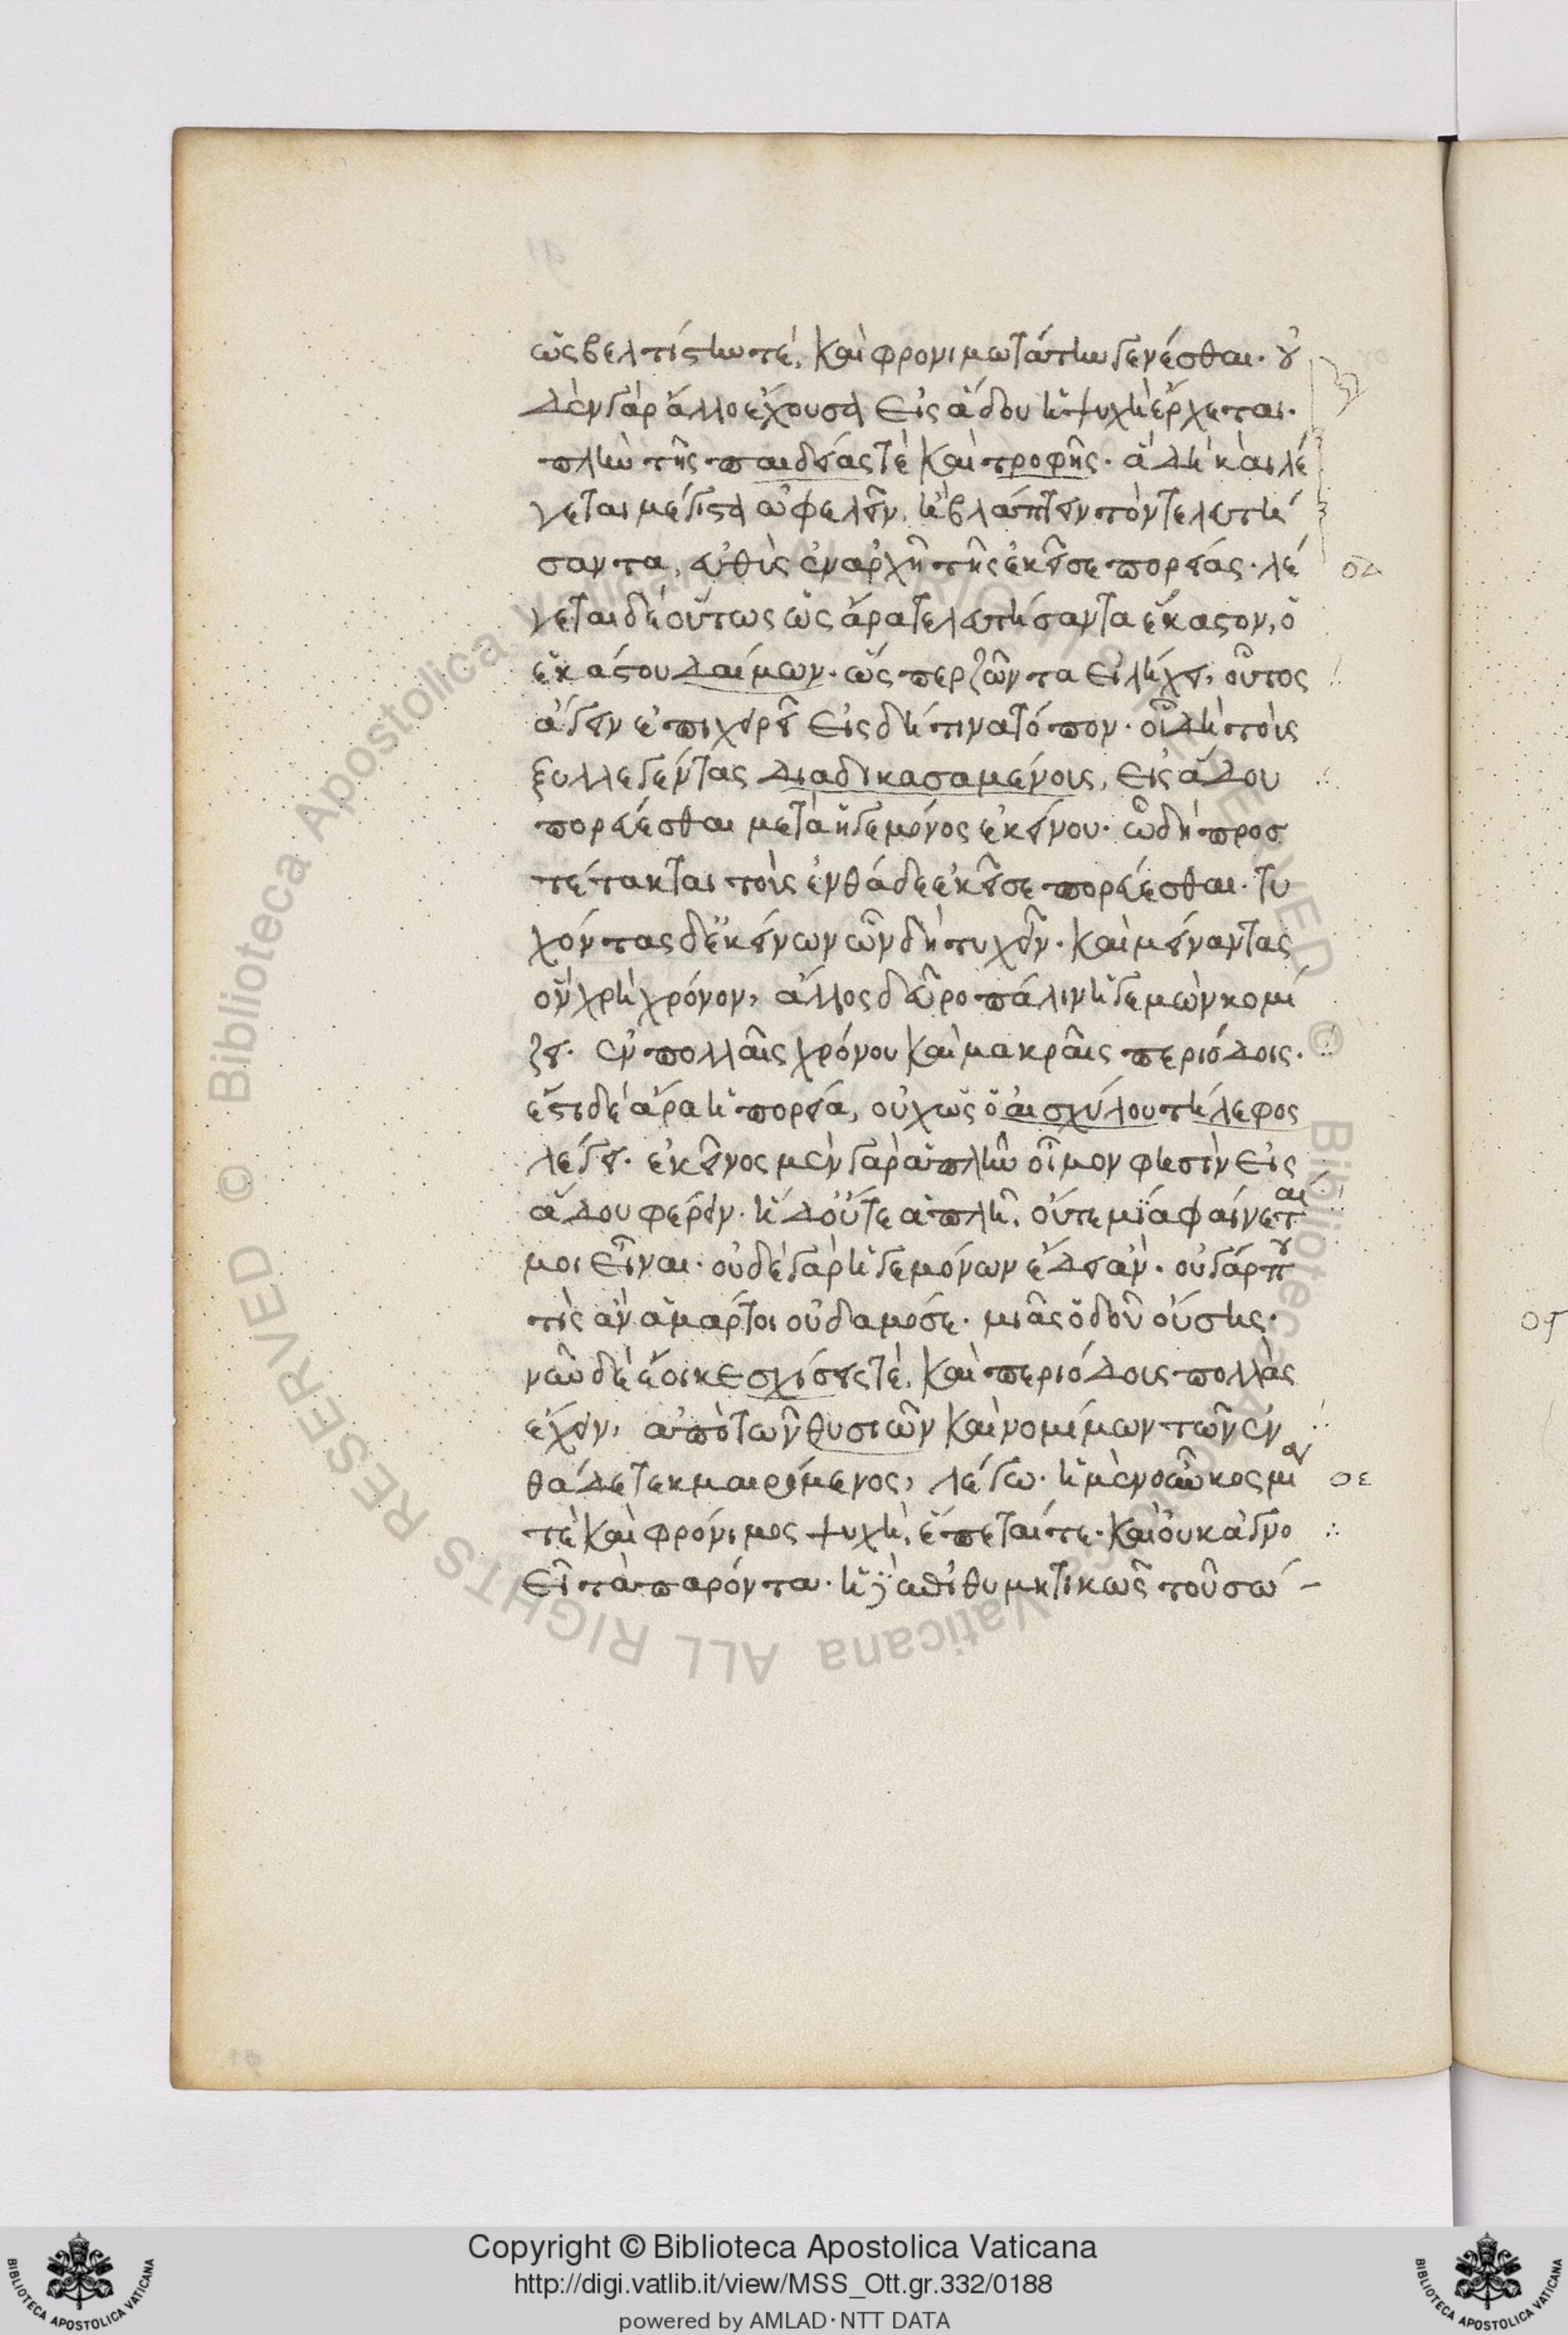 ὡς βελτίστην τὲ, καὶ φρονιμωτάτην γενέσθαι. οὐ
δὲν γὰρ ἄλλο ἔχουσα εἰς ἅδου ἡ ψυχὴ ἔρχεται.
πλὴν τῆς παιδείας τὲ καὶ τροφῆς. ἃ δὴ καὶ λέ
γεται μέγιστα ὠφελεῖν, ἢ βλάπτειν τὸν τελευτή
σαντα, εὐθὺς ἐν ἀρχῇ τῆς ἐκεῖσε πορείας. λέ
γεται δὲ οὕτως ὡς ἄρα τελευτήσαντα ἕκαστον, ὁ
ἑκάστου δαίμων. ὥσπερ ζῶντα εἰλήχει, οὗτος
ἄγειν ἐπιχειρεῖ εἰς δή τινα τόπον. οἷ δὴ τοὺς
ξυλλεγέντας διαδικασαμένους, εἰς ἅδου
πορεύεσθαι μετὰ ἡγεμόνος ἐκείνου. ᾧ δὴ προσ
τέτακται τοὺς ἐνθάδε ἐκεῖσε πορεύεσθαι. τυ
χόντας δ' ἐκείνων ὧν δὴ τυχεῖν. καὶ μείναντας
ὃν χρὴ χρόνον, ἄλλος δεῦρο πάλιν ἡγεμὼν κομί
ζει. ἐν πολλαῖς χρόνου καὶ μακραῖς περιόδοις.
ἔστι δὲ ἄρα ἡ πορεία, οὐχ ὡς ὁ αἰσχύλου τήλεφος
λέγει. ἐκεῖνος μὲν γὰρ ἁπλῆν οἶμον φησὶν εἰς
ἅδου φέρειν. ἡ δ' οὔτε ἁπλῆ, οὔτε μία φαίνεται
μοι εἶναι. οὐδὲ γὰρ ἡγεμόνων ἔδει ἄν. οὐ γάρ που
τὶς ἂν ἁμάρτοι οὐδαμόσε. μιᾶς ὁδοῦ οὔσης.
νῦν δὲ ἔοικε σχίσεις τὲ, καὶ περιόδους πολλὰς
ἔχειν, ἀπὸ τῶν θυσιῶν καὶ νομίμων τῶν ἐν
θάδε τεκμαιρόμενος, λέγω. ἡ μὲν οὖν κοσμία
τὲ καὶ φρόνιμος ψυχὴ, ἕπεταί τε. καὶ οὐκ ἀγνο
εῖ τὰ παρόντα. ἡ δ' ἐπιθυμητικῶς τοῦ σώ-
οδ
οε